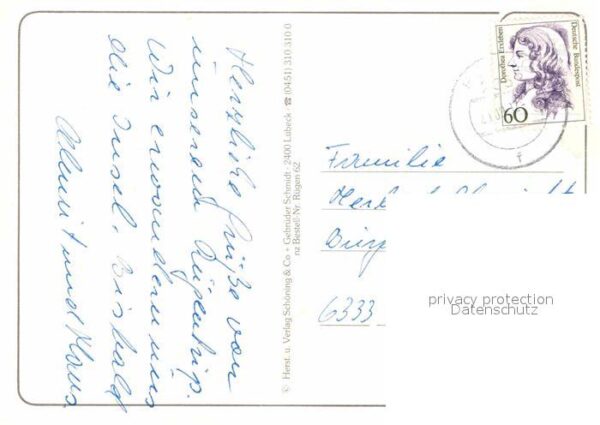 Herzliche Grüße von
unserem Rügentrip.
Wir erwandern uns
die Insel. Bis bald
und Klaus.
© Herst. u. Verlag Schöning & Co + Gebrüder Schmidt · 2400 Lübeck · ☎ (0451) 310 310 0
nz Bestell-Nr. Rügen 62
Dorothea Erxleben
Deutsche Bundespost
60
Familie
6333
privacy protection
Datenschutz